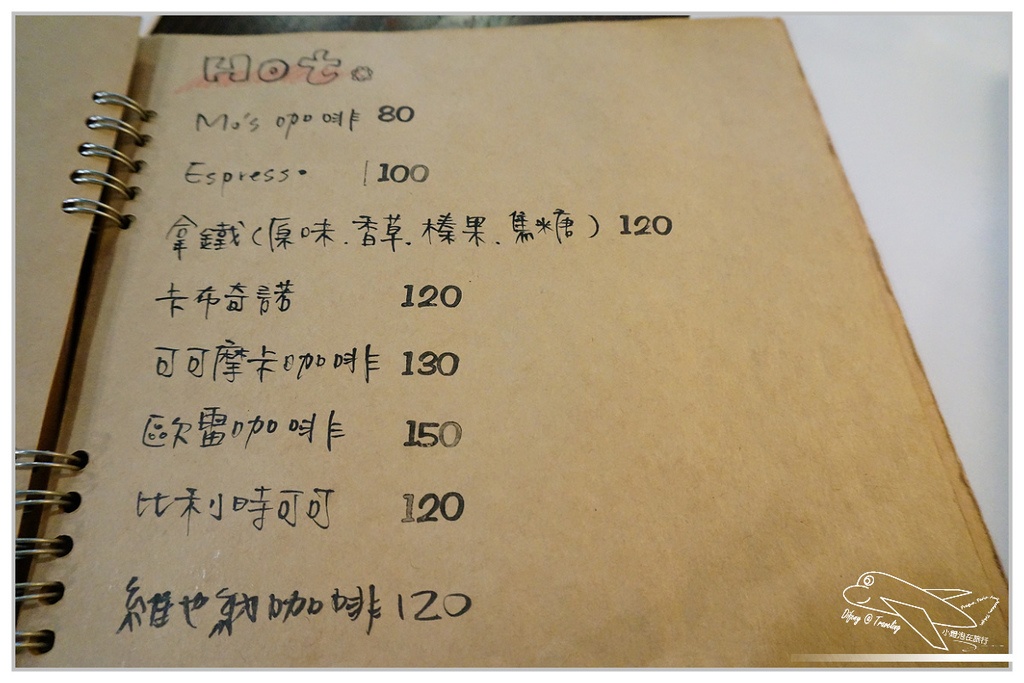 Hot。
Mo's 咖啡 80
Espresso 100
拿鐵(原味.香草.榛果.焦糖) 120
卡布奇諾 120
可可摩卡咖啡 130
歐雷咖啡 150
比利時可可 120
維也納咖啡 120
小燈泡在旅行